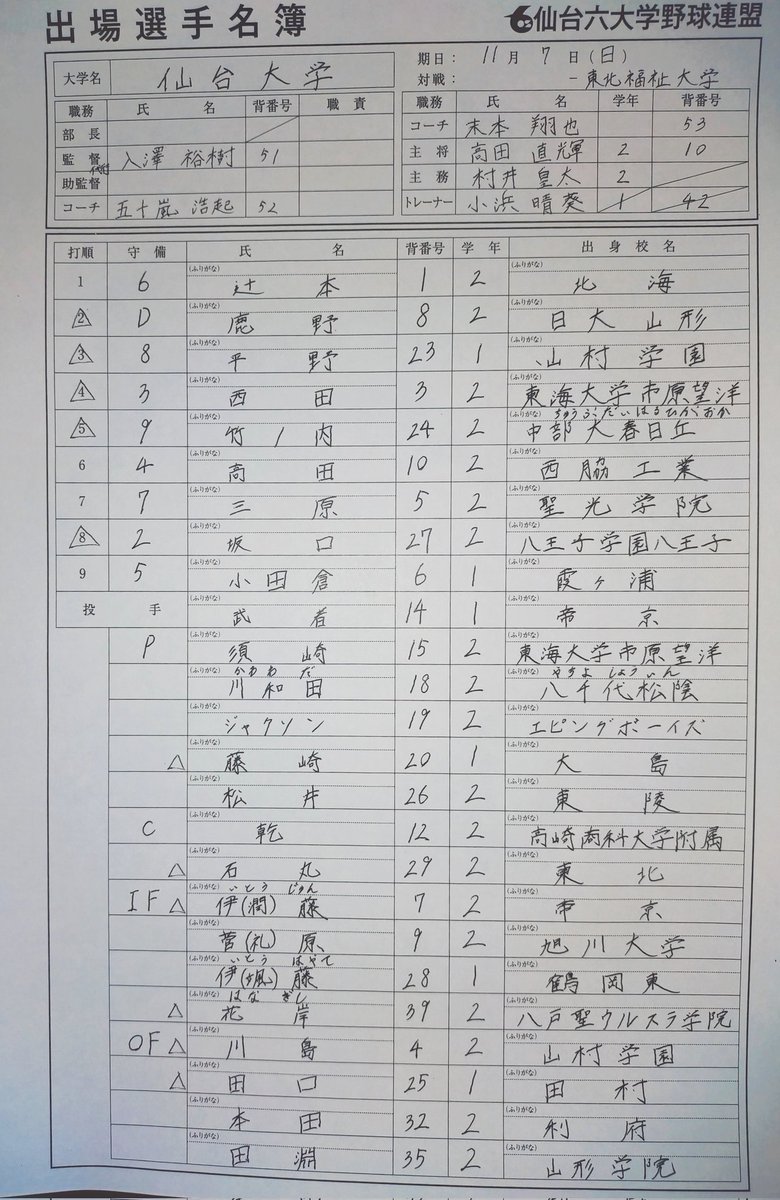 出場選手名簿 仙台六大学野球連盟
大学名 仙台大学
期日: 11月 7日(日)
対戦: - 東北福祉大学
職務 氏名 背番号 職責
部長
監督 代行 入澤 裕樹 51
助監督
コーチ 五十嵐 浩起 52
職務 氏名 学年 背番号
コーチ 末本 翔也 53
主将 高田 直輝 2 10
主務 村井 皇太 2
トレーナー 小浜 晴葵 1 42
打順 守備 氏名 背番号 学年 出身校名
1 6 (ふりがな) 辻本 1 2 (ふりがな) 北海
2 D (ふりがな) 鹿野 8 2 (ふりがな) 日大山形
3 8 (ふりがな) 平野 23 1 (ふりがな) 山村学園
4 3 (ふりがな) 西田 3 2 (ふりがな) 東海大学市原望洋
5 9 (ふりがな) 竹ノ内 24 2 (ふりがな) ちゅうぶだいはるひがおか 中部大春日丘
6 4 (ふりがな) 高田 10 2 (ふりがな) 西脇工業
7 7 (ふりがな) 三原 5 2 (ふりがな) 聖光学院
8 2 (ふりがな) 坂口 27 2 (ふりがな) 八王子学園八王子
9 5 (ふりがな) 小田倉 6 1 (ふりがな) 霞ヶ浦
投手 (ふりがな) 武者 14 1 (ふりがな) 帝京
P (ふりがな) 須崎 15 2 (ふりがな) 東海大学市原望洋
(ふりがな) かわわだ 川和田 18 2 (ふりがな) やちよしょういん 八千代松陰
(ふりがな) ジャクソン 19 2 (ふりがな) エピングボーイズ
△ (ふりがな) 藤崎 20 1 (ふりがな) 大島
(ふりがな) 松井 26 2 (ふりがな) 東陵
C (ふりがな) 乾 12 2 (ふりがな) 高崎商科大学附属
△ (ふりがな) 石丸 29 2 (ふりがな) 東北
IF △ (ふりがな) いとう じゅん 伊(潤)藤 7 2 (ふりがな) 帝京
(ふりがな) 菅(礼)原 9 2 (ふりがな) 旭川大学
(ふりがな) いとう はやて 伊(颯)藤 28 1 (ふりがな) 鶴岡東
△ (ふりがな) はなぎし 花岸 39 2 (ふりがな) 八戸聖ウルスラ学院
OF △ (ふりがな) 川島 4 2 (ふりがな) 山村学園
△ (ふりがな) 田口 25 1 (ふりがな) 田村
(ふりがな) 本田 32 2 (ふりがな) 利府
(ふりがな) 田淵 35 2 (ふりがな) 山形学院